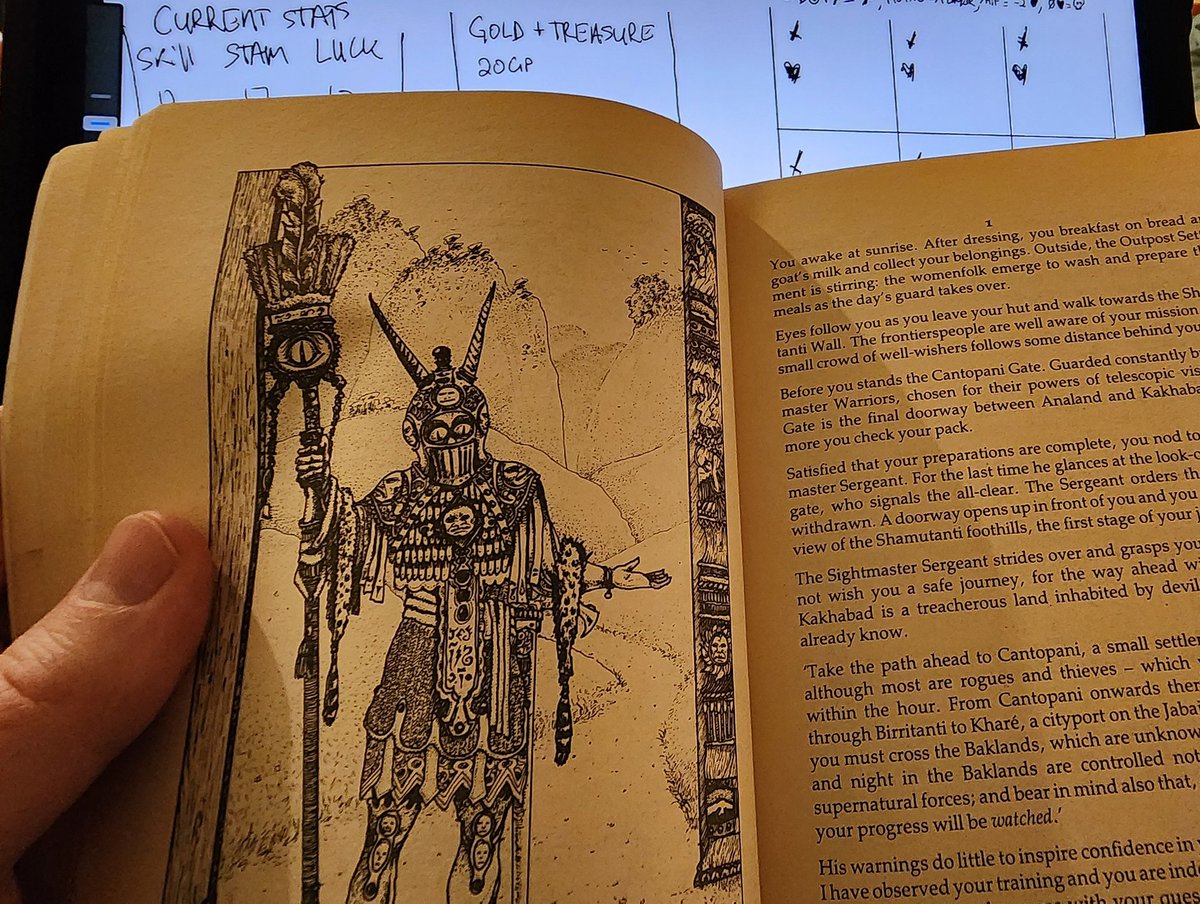 CURRENT STATS
Skill STAM LUCK
GOLD + TREASURE
20GP
1
You awake at sunrise. After dressing, you breakfast on bread
goat's milk and collect your belongings. Outside, the Outpost
ment is stirring: the womenfolk emerge to wash and prepare
meals as the day's guard takes over.
Eyes follow you as you leave your hut and walk towards the
tanti Wall. The frontierspeople are well aware of your mission
small crowd of well-wishers follows some distance behind
Before you stands the Cantopani Gate. Guarded constantly
master Warriors, chosen for their powers of telescopic
Gate is the final doorway between Analand and
more you check your pack.
Satisfied that your preparations are complete, you nod to
master Sergeant. For the last time he glances at the
gate, who signals the all-clear. The Sergeant orders
withdrawn. A doorway opens up in front of you and
view of the Shamutanti foothills, the first stage of your
The Sightmaster Sergeant strides over and grasps
not wish you a safe journey, for the way ahead
Kakhabad is a treacherous land inhabited by
already know.
'Take the path ahead to Cantopani, a small
although most are rogues and thieves – which
within the hour. From Cantopani onwards
through Birritanti to Kharé, a cityport on the
you must cross the Baklands, which are
and night in the Baklands are controlled
supernatural forces; and bear in mind also that,
your progress will be watched.'
His warnings do little to inspire confidence in
I have observed your training and you are
with your